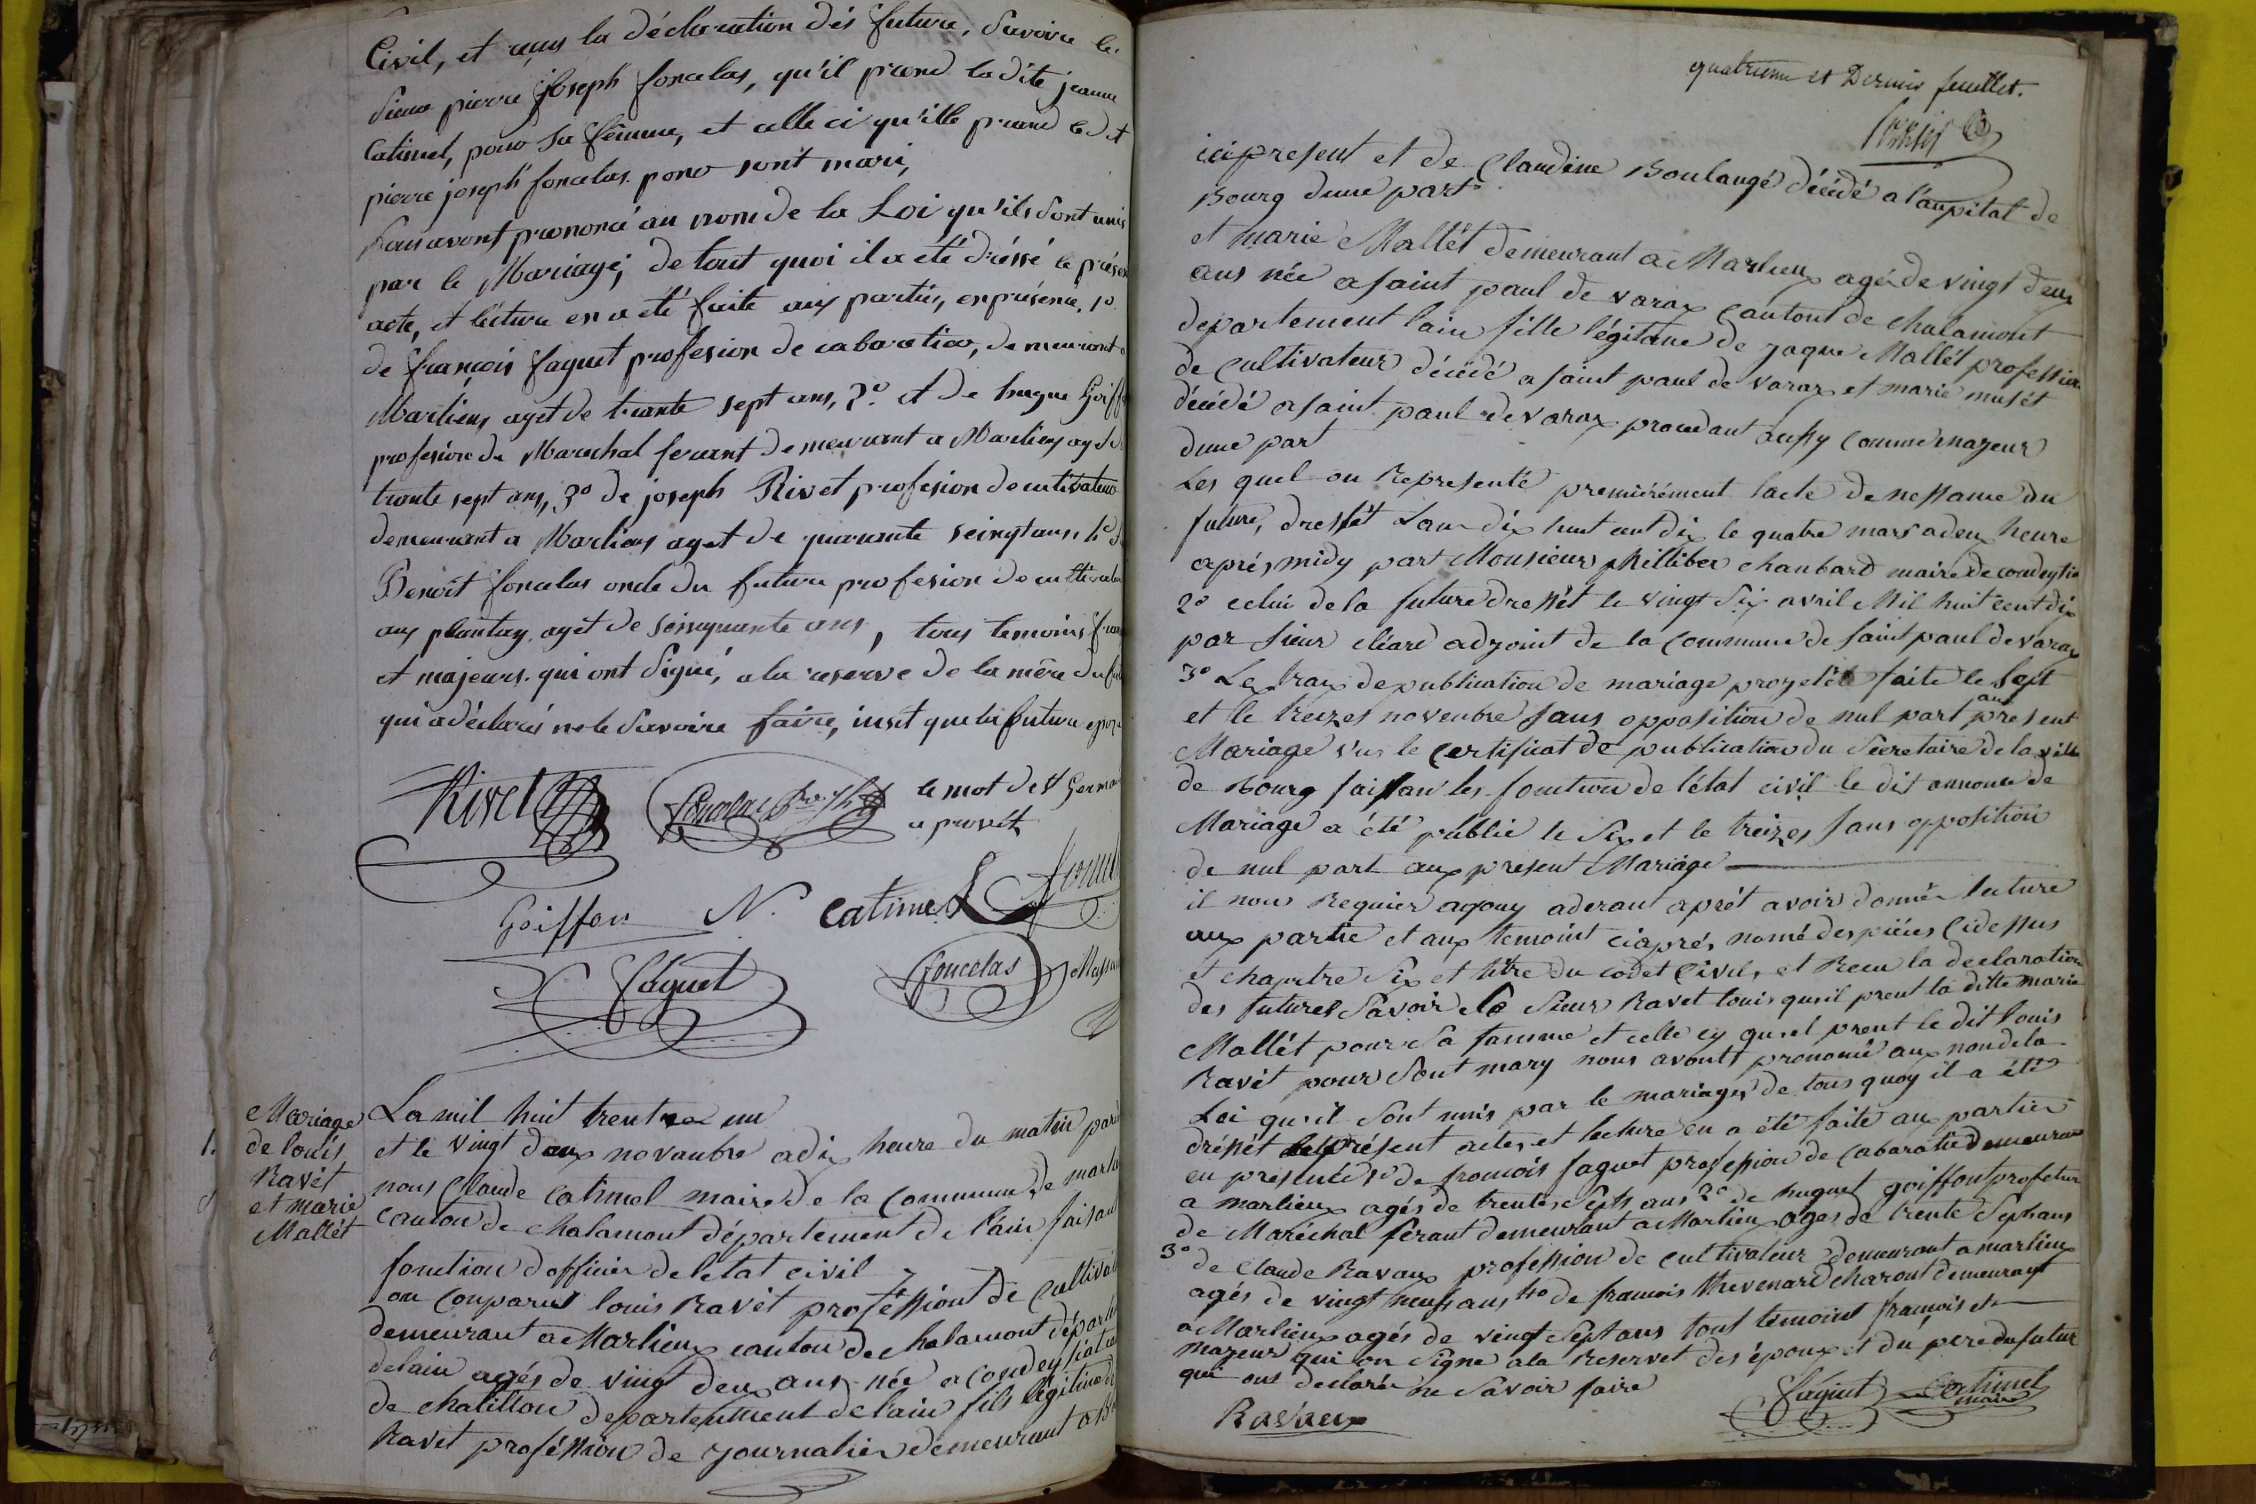 Civil, et reçus la déclaration dés future, Savoire le
Sieur pierre Joseph foncelas, qu'il prend la dite jeanne
Catimel, pour Sa fémme, et celle ci qu'ille prand le dit
pierre joseph foncelas pour sont mari,
Nous avont prononcé au nom de la Loi qu'ils sont unis
par le Mariage; de tout quoi il a été dréssé le présen
acte, et lécture en a été faite aux partie, en présence, 1º
de françois faguet profesion de cabaretier, demeuront a
Marlieux aget de trante sept ans, 2º et de hugue Goiff
profesion de Marechal ferant demeurant a Marlieux aget de
trante sept ans, 3º de joseph Rivet profesion de cultivateur
demeurant a Marlieux aget de quarante
Benoit foncelas oncle du future profesion de cultivateur
aux plantay, aget de soissquante ans, tous temoins fran
et majeurs qui ont Signé, a la reserve de la mêre du fut
qui a déclaré ne le Savoire faire, insit que la future epoze
Rivet
le mot de St Germa
a prouvét
Goiffon N. Catimel
Faguet foncelas
Mariage
de louis
Ravét
et marie
Mallét
1.
La mil huit trente un
et le vingt deux novanbre a dix heure du matin pard
nous Claude Catimel maire de la Commune de marlie
canton de Chalamont département de l'ain faisant
fonction d'officier de letat civil
on Conparus louis Ravét proféssiont de Cultivat
demeurant a Marlieux canton de chalamont départ
delain agés de vingt deux ans née a Condeysiat can
de chatillon departentment de l'ain fils légitime de
Ravet proféssion de journalier demeurant a Bo
quatrieme et Dernier feuillet.
ici present et de Claudine Boulangé décédé a l'aupital de
Bourg dune part
et marie Mallét demeurant a Marlieux agé de vingt deux
ans née a saint paul de varax Cantont de Chalamont
departement lain fille légitime de jaque Mallét profession
de Cultivateur décédé a saint paul de varax et marie musét
décédé a saint paul de varax procedant aussy Comme majeur
dune part
Les quel on Representé premiérément lacte de nessance du
future, dressét Lan dix huit cent dix le quatre mars a deux heure
aprés midy part Monsieur philliber chanbard maire de condeysia
2º celui de la future dressét le vingt Six avril Mil huit cent dix
par sieur cléard adjoint de la Commune de saint paul de varax
3º Lextrax de publication de mariage projetét faite le Sept
et le treizes novenbre sans opposition de nul part aux present
Mariage vus le Certificat de publication du Secretaire de la ville
de Bourg faissan les fonction de l'état civil le dit annonce de
Mariage a été publié le Six et le treizes sans opposition
de nul part aux present Mariage
il nous Requier ayouy aderant aprét avoir donnér lecture
aux partie et aux temoint ciaprés nomé des piéces Cidessus
et chapitre Six et titre du codet Civil, et Recu la declaration
des futures Savoir le Sieur Ravet louis qusil prent la ditte marie
Mallét pour Sa famme et celle cy qusel prent le dit louis
Ravét pour Sont mary nous avontt prononcé aux non de la
Loi qusil Sont unis par le mariage, de tous quoy il a été
dréssét le présent actes, et lecture en a été faite aux partier
en presence 1º de francois faguet profession de Cabaratié demeurant
a marlieux agés de trentes Sept ans 2º de huguet goiffont profetion
de Maréchal férant demeurant a Marlieux ages de trente Sept ans
3º de Claude Ravaux profession de Cultivateur demeurant a marlieux
agés de vingt neufs ans 4º de francois thevenard charont demeurant
a Marlieux agés de vingt Sept ans tout temoint françois et
mazeur qui on Signe a la Reservet des époux et du pere du futur
qui ont declarér ne Savoir faire
Ravaux Faguet Catimel
maire